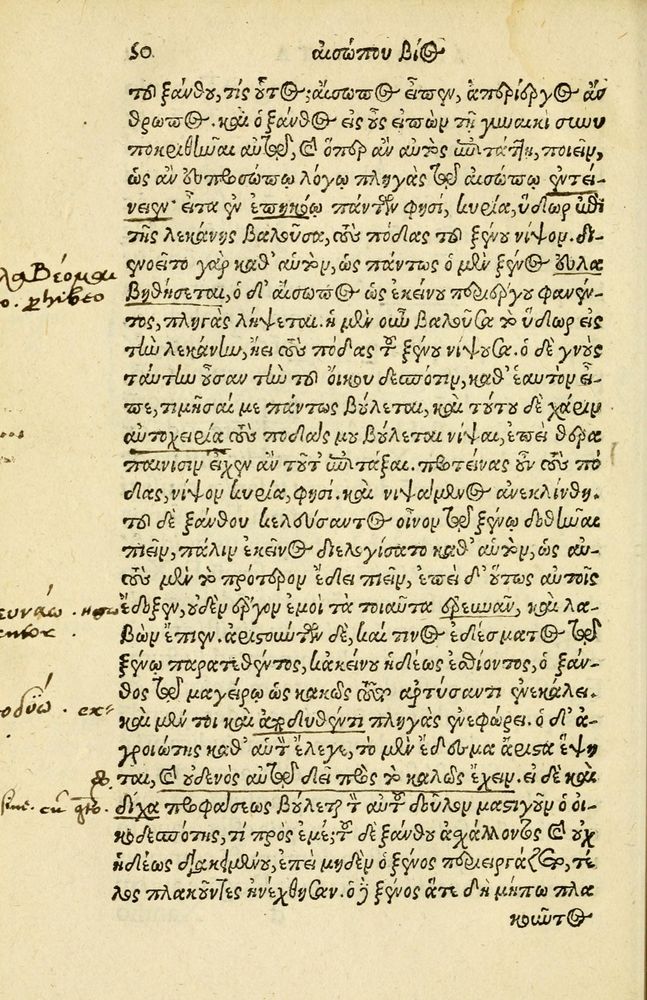 50 αἰσώπου βίος
τοῦ ξάνθου, τίς οὗτος; αἴσωπος εἶπεν, ἀπερίεργος ἄν
θρωπος. καὶ ὁ ξάνθος εἰς οὖς εἰπὼν τῇ γυναικὶ συνυ
ποκριθῆναι αὐτῷ, καὶ ὅπερ ἂν αὐτὸς ἐπιτάττῃ, ποιεῖν,
ὡς ἂν εὐπροσώπῳ λόγῳ πληγὰς τῷ αἰσώπῳ ἐντεί-
νειεν· εἶτα ἐν ἐπηκόῳ πάντων φησί, κυρία, ὕδωρ ἐπὶ
τῆς λεκάνης βαλοῦσα, τοὺς πόδας τοῦ ξένου νίψον. δι-
ενοεῖτο γὰρ καθ' αὑτὸν, ὡς πάντως ὁ μὲν ξένος εὐλα
βηθήσεται, ὁ δ' αἴσωπος ὡς ἐκείνου περιέργου φανέν-
τος, πληγὰς λήψεται. ἡ μὲν οὖν βαλοῦσα τὸ ὕδωρ εἰς
τὴν λεκάνην, ᾔει τοὺς πόδας τοῦ ξένου νίψουσα. ὁ δὲ γνοὺς
ταύτην οὖσαν τὴν τοῦ οἴκου δεσπότιν, καθ' ἑαυτὸν εἶ-
πε, τιμῆσαί με πάντως βούλεται, καὶ τούτου δὲ χάριν
αὐτοχειρία τοὺς πόδας μου βούλεται νίψαι, ἐπεὶ θερα
παινίσιν εἶχεν ἂν τοῦτ' ἐπιτάξαι. προτείνας οὖν τοὺς πό
δας, νίψον κυρία, φησί. καὶ νιψάμενος ἀνεκλίνθη.
τοῦ δὲ ξάνθου κελεύσαντος οἶνον τῷ ξένῳ δοθῆναι
πιεῖν, πάλιν ἐκεῖνος διελογίσατο καθ' αὑτὸν, ὡς αὐ-
τοὺς μὲν τὸ πρότερον ἔδει πιεῖν, ἐπεὶ δ' οὕτως αὐτοῖς
ἔδοξεν, οὐδὲν ἔργον ἐμοὶ τὰ τοιαῦτα ἐρευνᾶν, καὶ λα-
βὼν ἔπιεν. ἀριστώντων δὲ, καί τινος ἐδέσματος τῷ
ξένῳ παρατεθέντος, κἀκείνου ἡδέως ἐσθίοντος, ὁ ξάν-
θος τῷ μαγείρῳ ὡς κακῶς τοῦτ' ἀρτύσαντι ἐνεκάλει.
καὶ μέν τοι καὶ ἀποδυθέντι πληγὰς ἐνεφόρει. ὁ δ' ἀ-
γροιώτης καθ' αὑτὸν ἔλεγε, τὸ μὲν ἔδεσμα ἄριστα ἕψη
ται, καὶ οὐδενὸς αὐτῷ δεῖ πρὸς τὸ καλῶς ἔχειν. εἰ δὲ καὶ
δίχα προφάσεως βούλεται τὸν αὑτοῦ δοῦλον μαστιγοῦν ὁ οἰ-
κοδεσπότης, τί πρὸς ἐμέ; τοῦ δὲ ξάνθου ἀσχάλλοντος καὶ οὐχ
ἡδέως διακειμένου, ἐπεὶ μηδὲν ὁ ξένος περιεργάζεται, τέ
λος πλακοῦντες ἠνέχθησαν. ὁ δὲ ξένος ἅτε δὴ μήπω πλα
κοῦντος